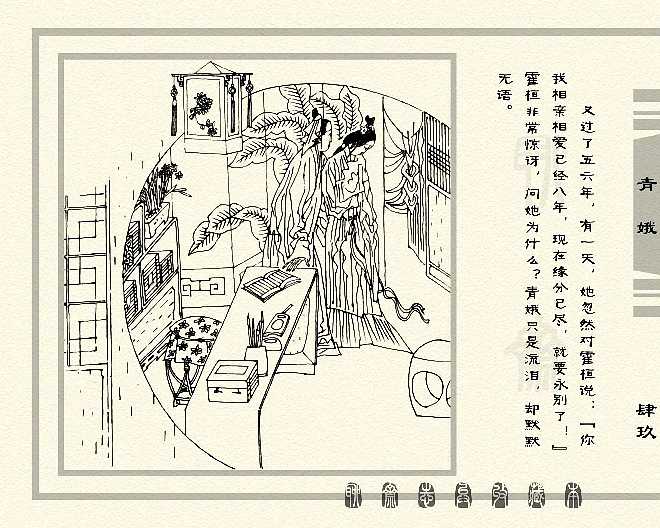 又过了五六年，有一天，她忽然对霍桓说：「你
我相亲相爱已经八年，现在缘分已尽，就要永别了！」
霍桓非常惊讶，问她为什么？青娥只是流泪，却默默
无语。
青娥
肆玖
聊斋志异收藏本